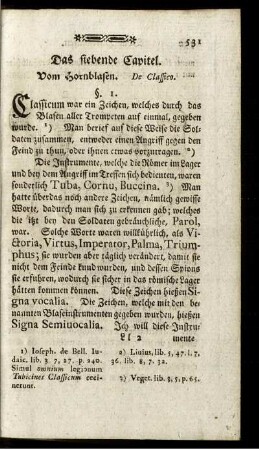 531
Das siebende Capitel.
Vom Hornblasen. De Classico.
§. 1.
Classicum war ein Zeichen, welches durch das
Blasen aller Trompeten auf einmal, gegeben
wurde. ¹) Man berief auf diese Weise die Sol-
daten zusammen, entweder einen Angriff gegen den
Feind zu thun, oder ihnen etwas vorzutragen. ²)
Die Instrumente, welche die Römer im Lager
und bey dem Angriff im Treffen sich bedienten, waren
sonderlich Tuba, Cornu, Buccina. ³) Man
hatte überdas noch andere Zeichen, nämlich gewisse
Worte, dadurch man sich zu erkennen gab; welches
die itzt bey den Soldaten gebräuchliche, Parol,
war. Solche Worte waren willkührlich, als Vi-
ctoria, Virtus, Imperator, Palma, Trium-
phus; sie wurden aber täglich verändert, damit sie
nicht dem Feinde kund wurden, und dessen Spions
sie erfuhren, wodurch sie sicher in das römische Lager
hätten kommen können. Diese Zeichen hießen Si-
gna vocalia. Die Zeichen, welche mit den be-
nannten Blaseinstrumenten gegeben wurden, hießen
Signa Semiuocalia. Ich will diese Instru-
Ll 2 mente
1) Ioseph. de Bell. Iu-
daic. lib. 3, 7, 27. p. 240.
Simul omnium legionum
Tubicines Classicum ceci-
nerunt.
2) Liuius, lib. 5, 47. l. 7,
36. lib. 8, 7. 32.
3) Veget. lib. 3, 5. p. 65.